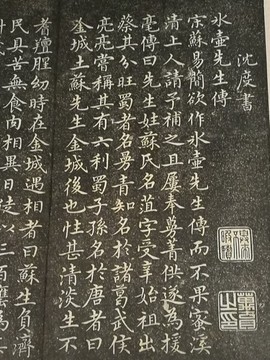 沈度書
氷壺先生傳
宋蘇易簡欲作氷壺先生傳而不果
清上人請予補之且屢奉蔓菁供遂為援
毫傳曰先生姓蘇氏名字受始祖出
蔡其旺蜀者名蔓青知名於諸葛武侯
亮亮嘗稱其有六利蜀子孫名於唐者曰
金城土蘇先生金城後也性甚清淡生不
者羶腥幼時在金城遇相者曰蘇生負濟
民具苦無食肉相異日徒以三百甕為